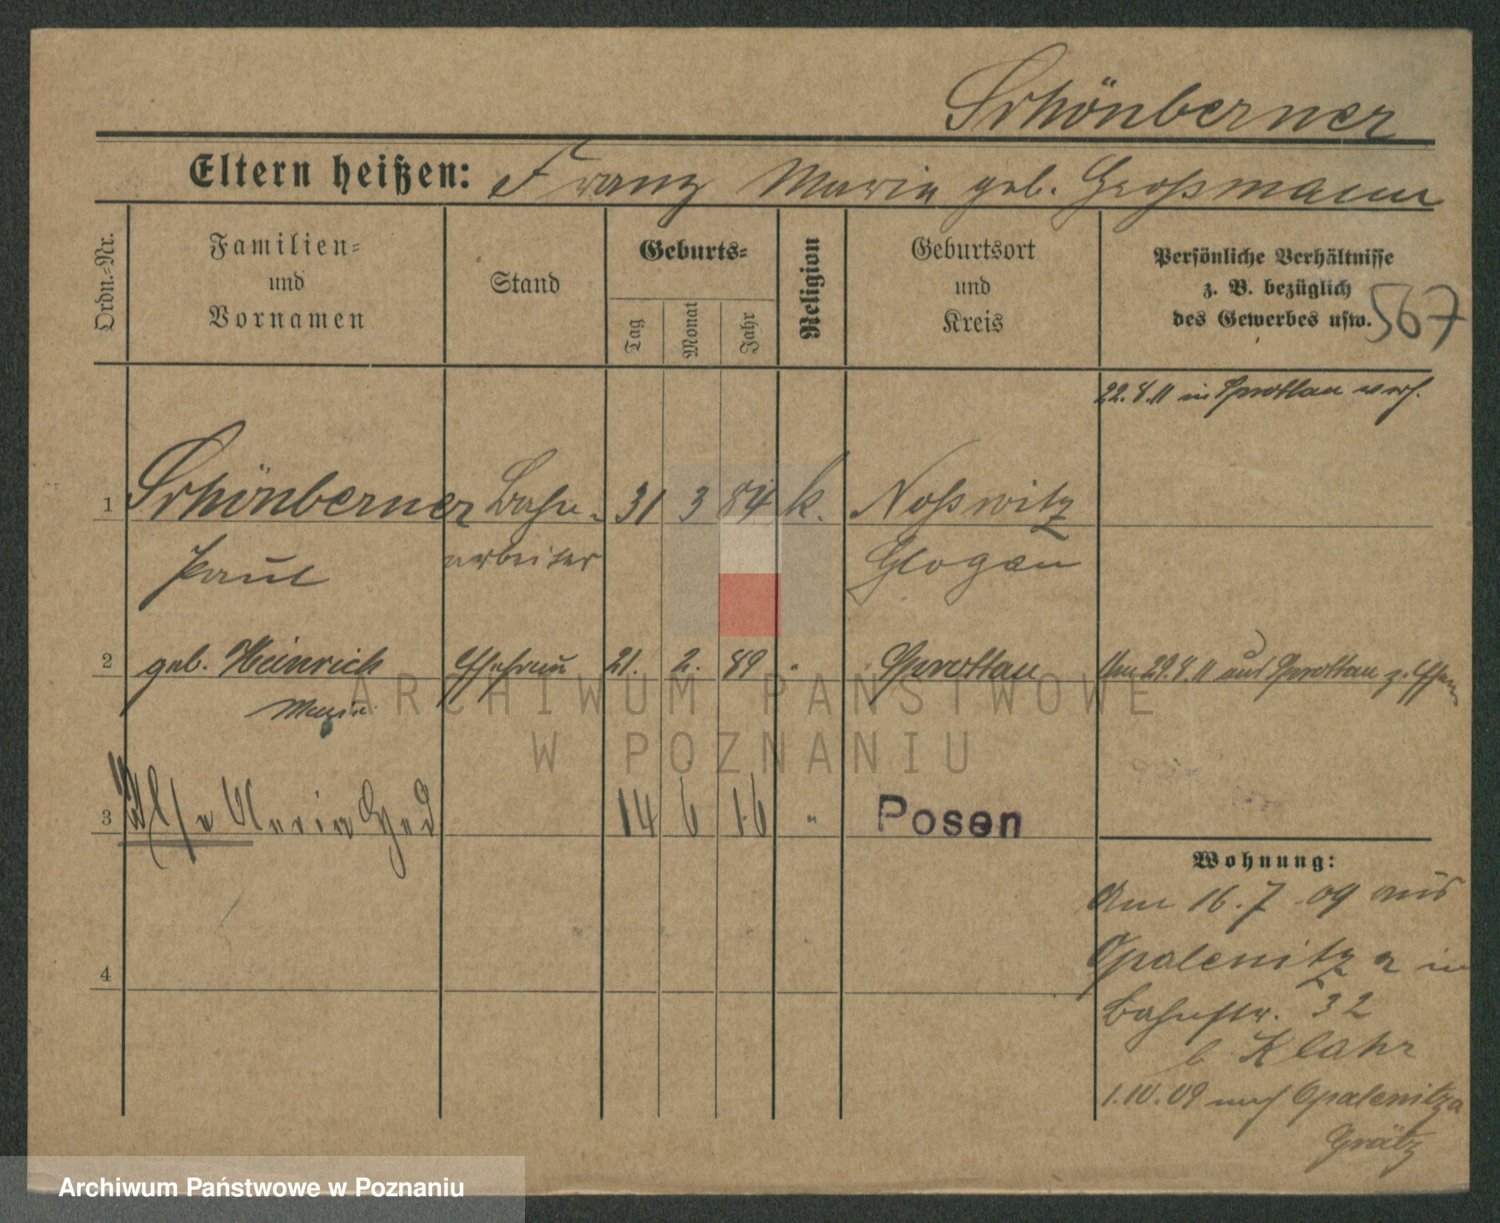 Schönberner
Eltern heißen: Franz Maria geb. Großmann
Ordn.=Nr.
Familien=
und
Vornamen
Stand
Geburts=
Tag
Monat
Jahr
Religion
Geburtsort
und
Kreis
Persönliche Verhältnisse
z. B. bezüglich
des Gewerbes usw.
567
22.8.11 in Sprottau verh.
1 Schönberner Bahn- 31 3 84 k. Noßwitz
Paul arbeiter Glogau
2 geb. Heinrich Ehefrau 21. 2. 89 " Sprottau Am 29.8.11 aus Sprottau z.
Maria
3 Maria Hed 14 6 16 " Posen
4
Wohnung:
Am 16.7.09 aus
Opalenitza in
Bahnstr. 32
b. Klahr
1.10.09 nach Opalenitza
Grätz
ARCHIWUM PAŃSTWOWE
W POZNANIU
Archiwum Państwowe w Poznaniu